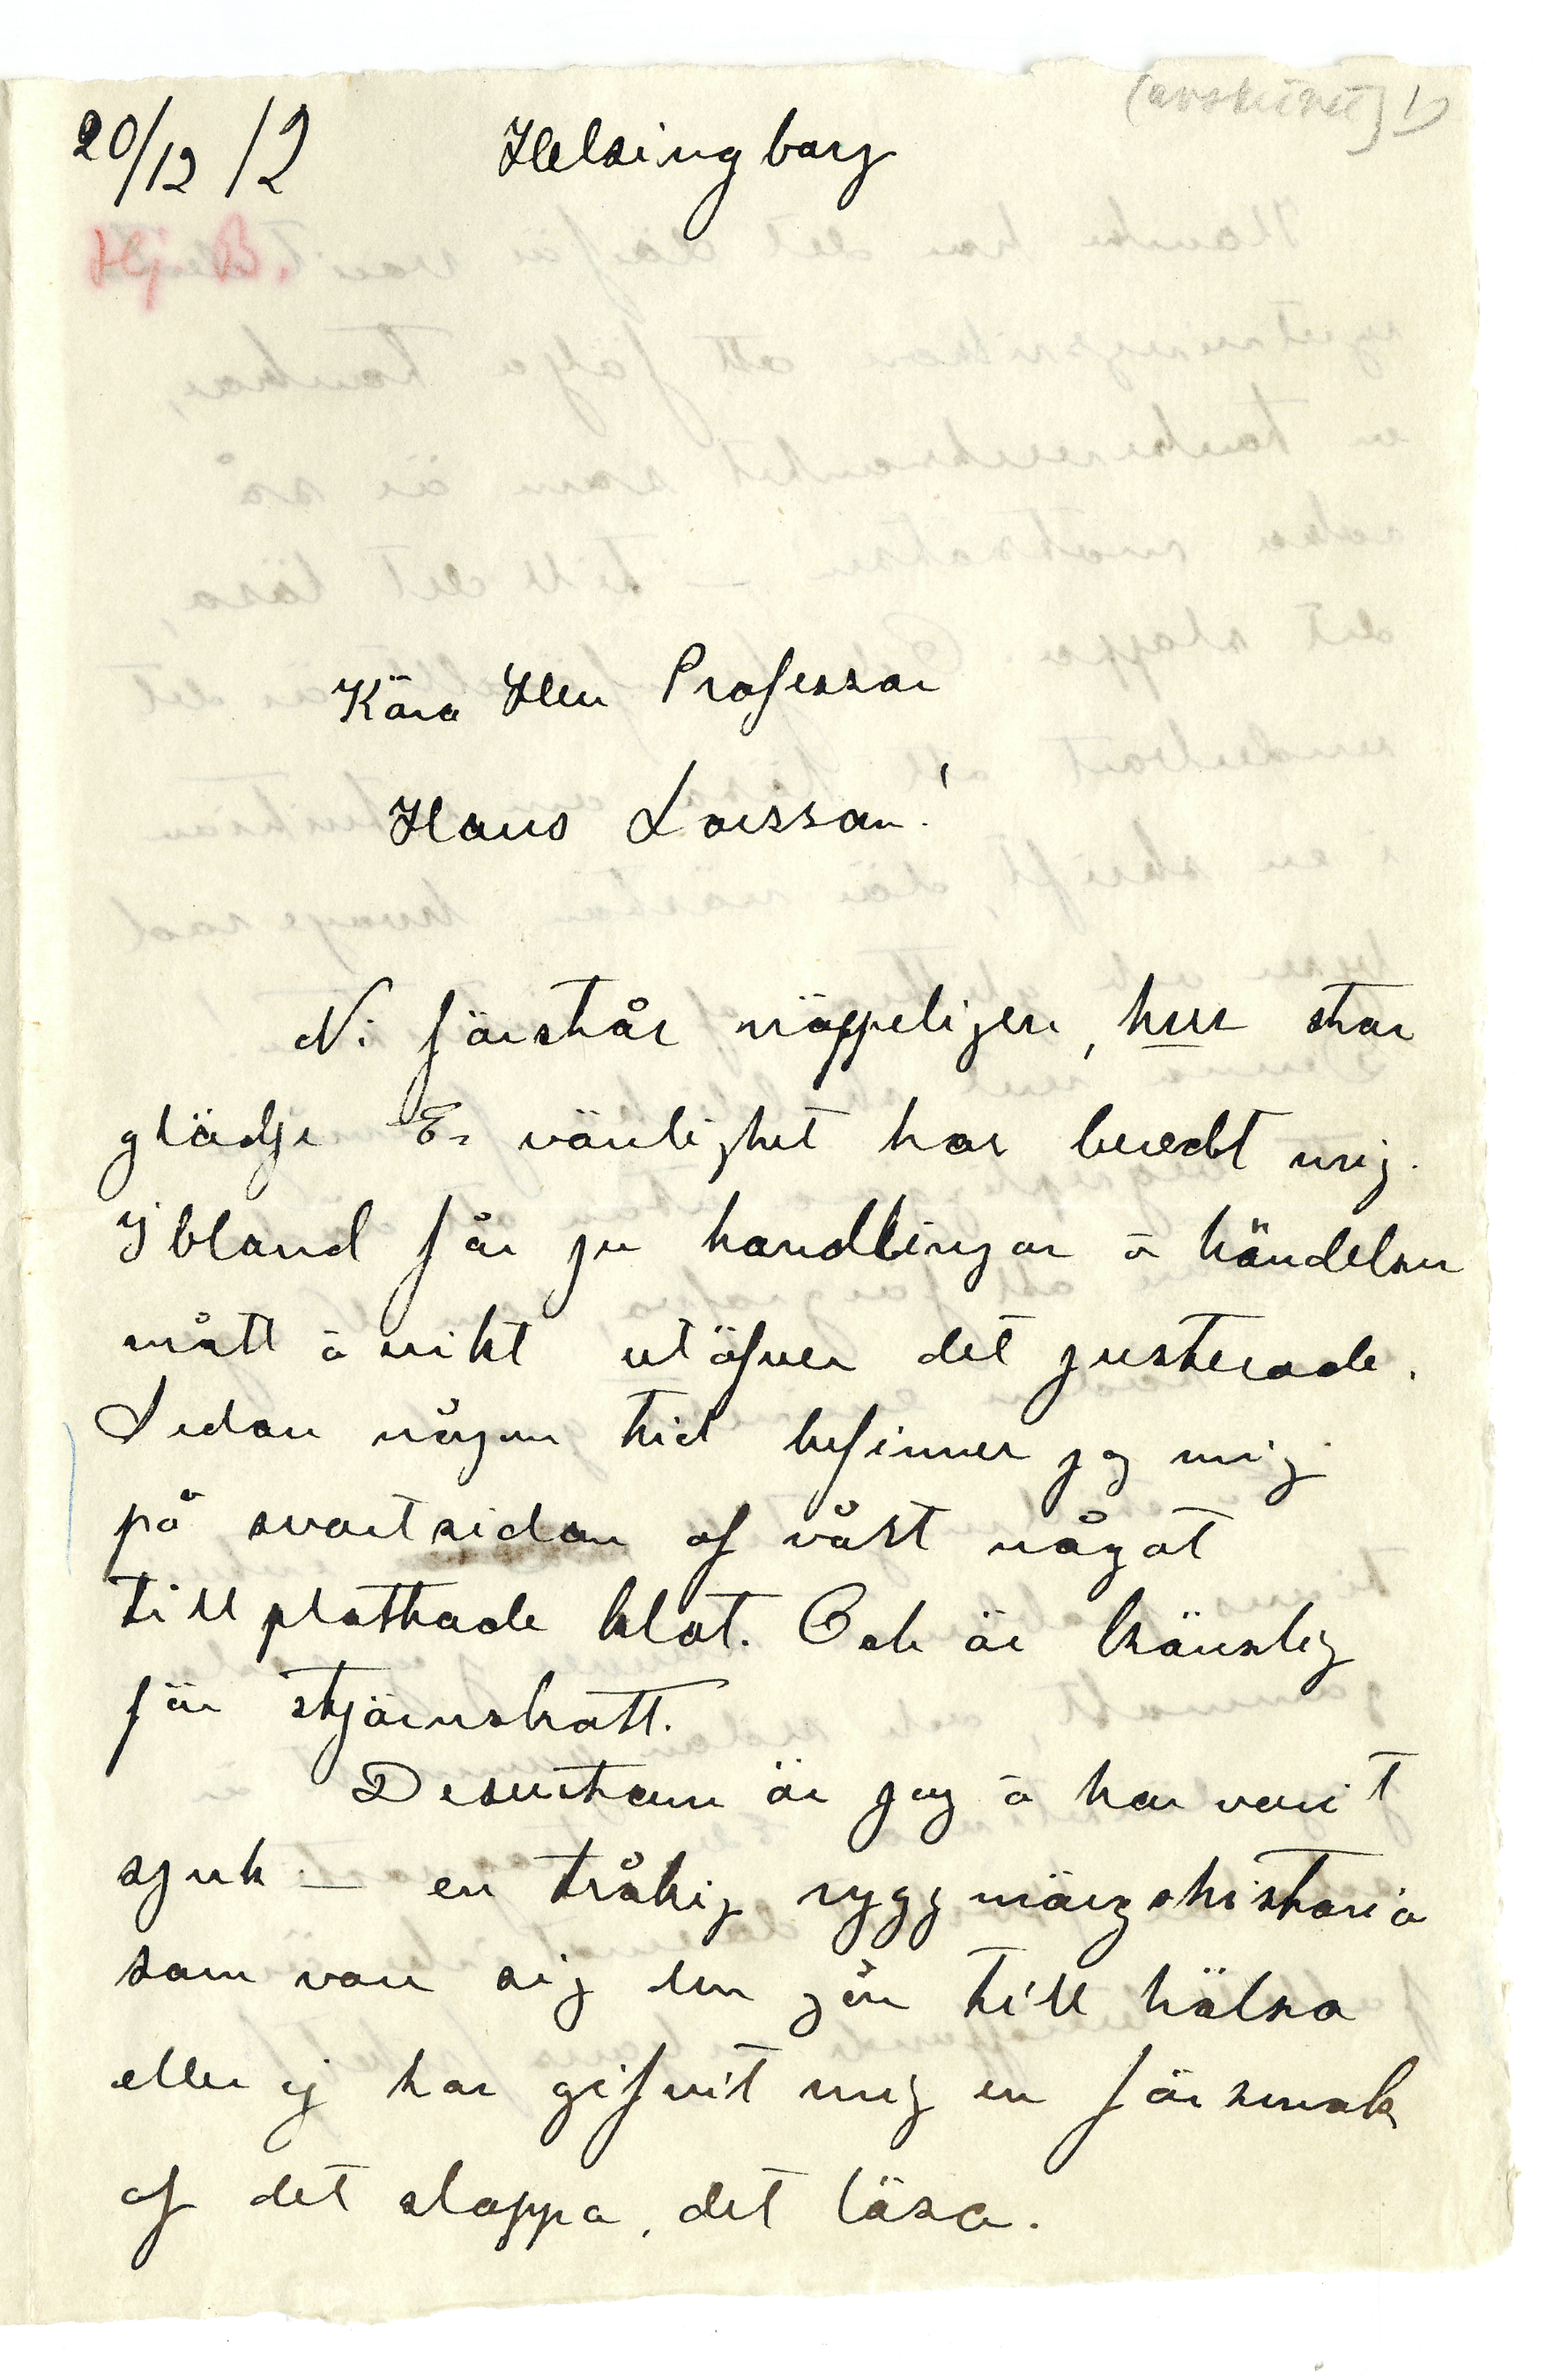 (avskrivet) 1)
20/12 12 Helsingborg
Hj. B.
Kära Herr Professor
Hans Larsson!
Ni förstår näppeligen, hur stor
glädje Er vänlighet har beredt mig.
Ibland får ju handlingar o händelser
mått o vikt utöfver det justerade.
Sedan någon tid befinner jag mig
på svartsidan af vårt något
tillplattade klot. Och är känslig
för stjärnskott.
Dessutom är jag o har varit
sjuk – en tråkig ryggmärgshistoria
som vare sig den går till hälsa
eller ej har gifvit mig en försmak
af det slappa, det lösa.